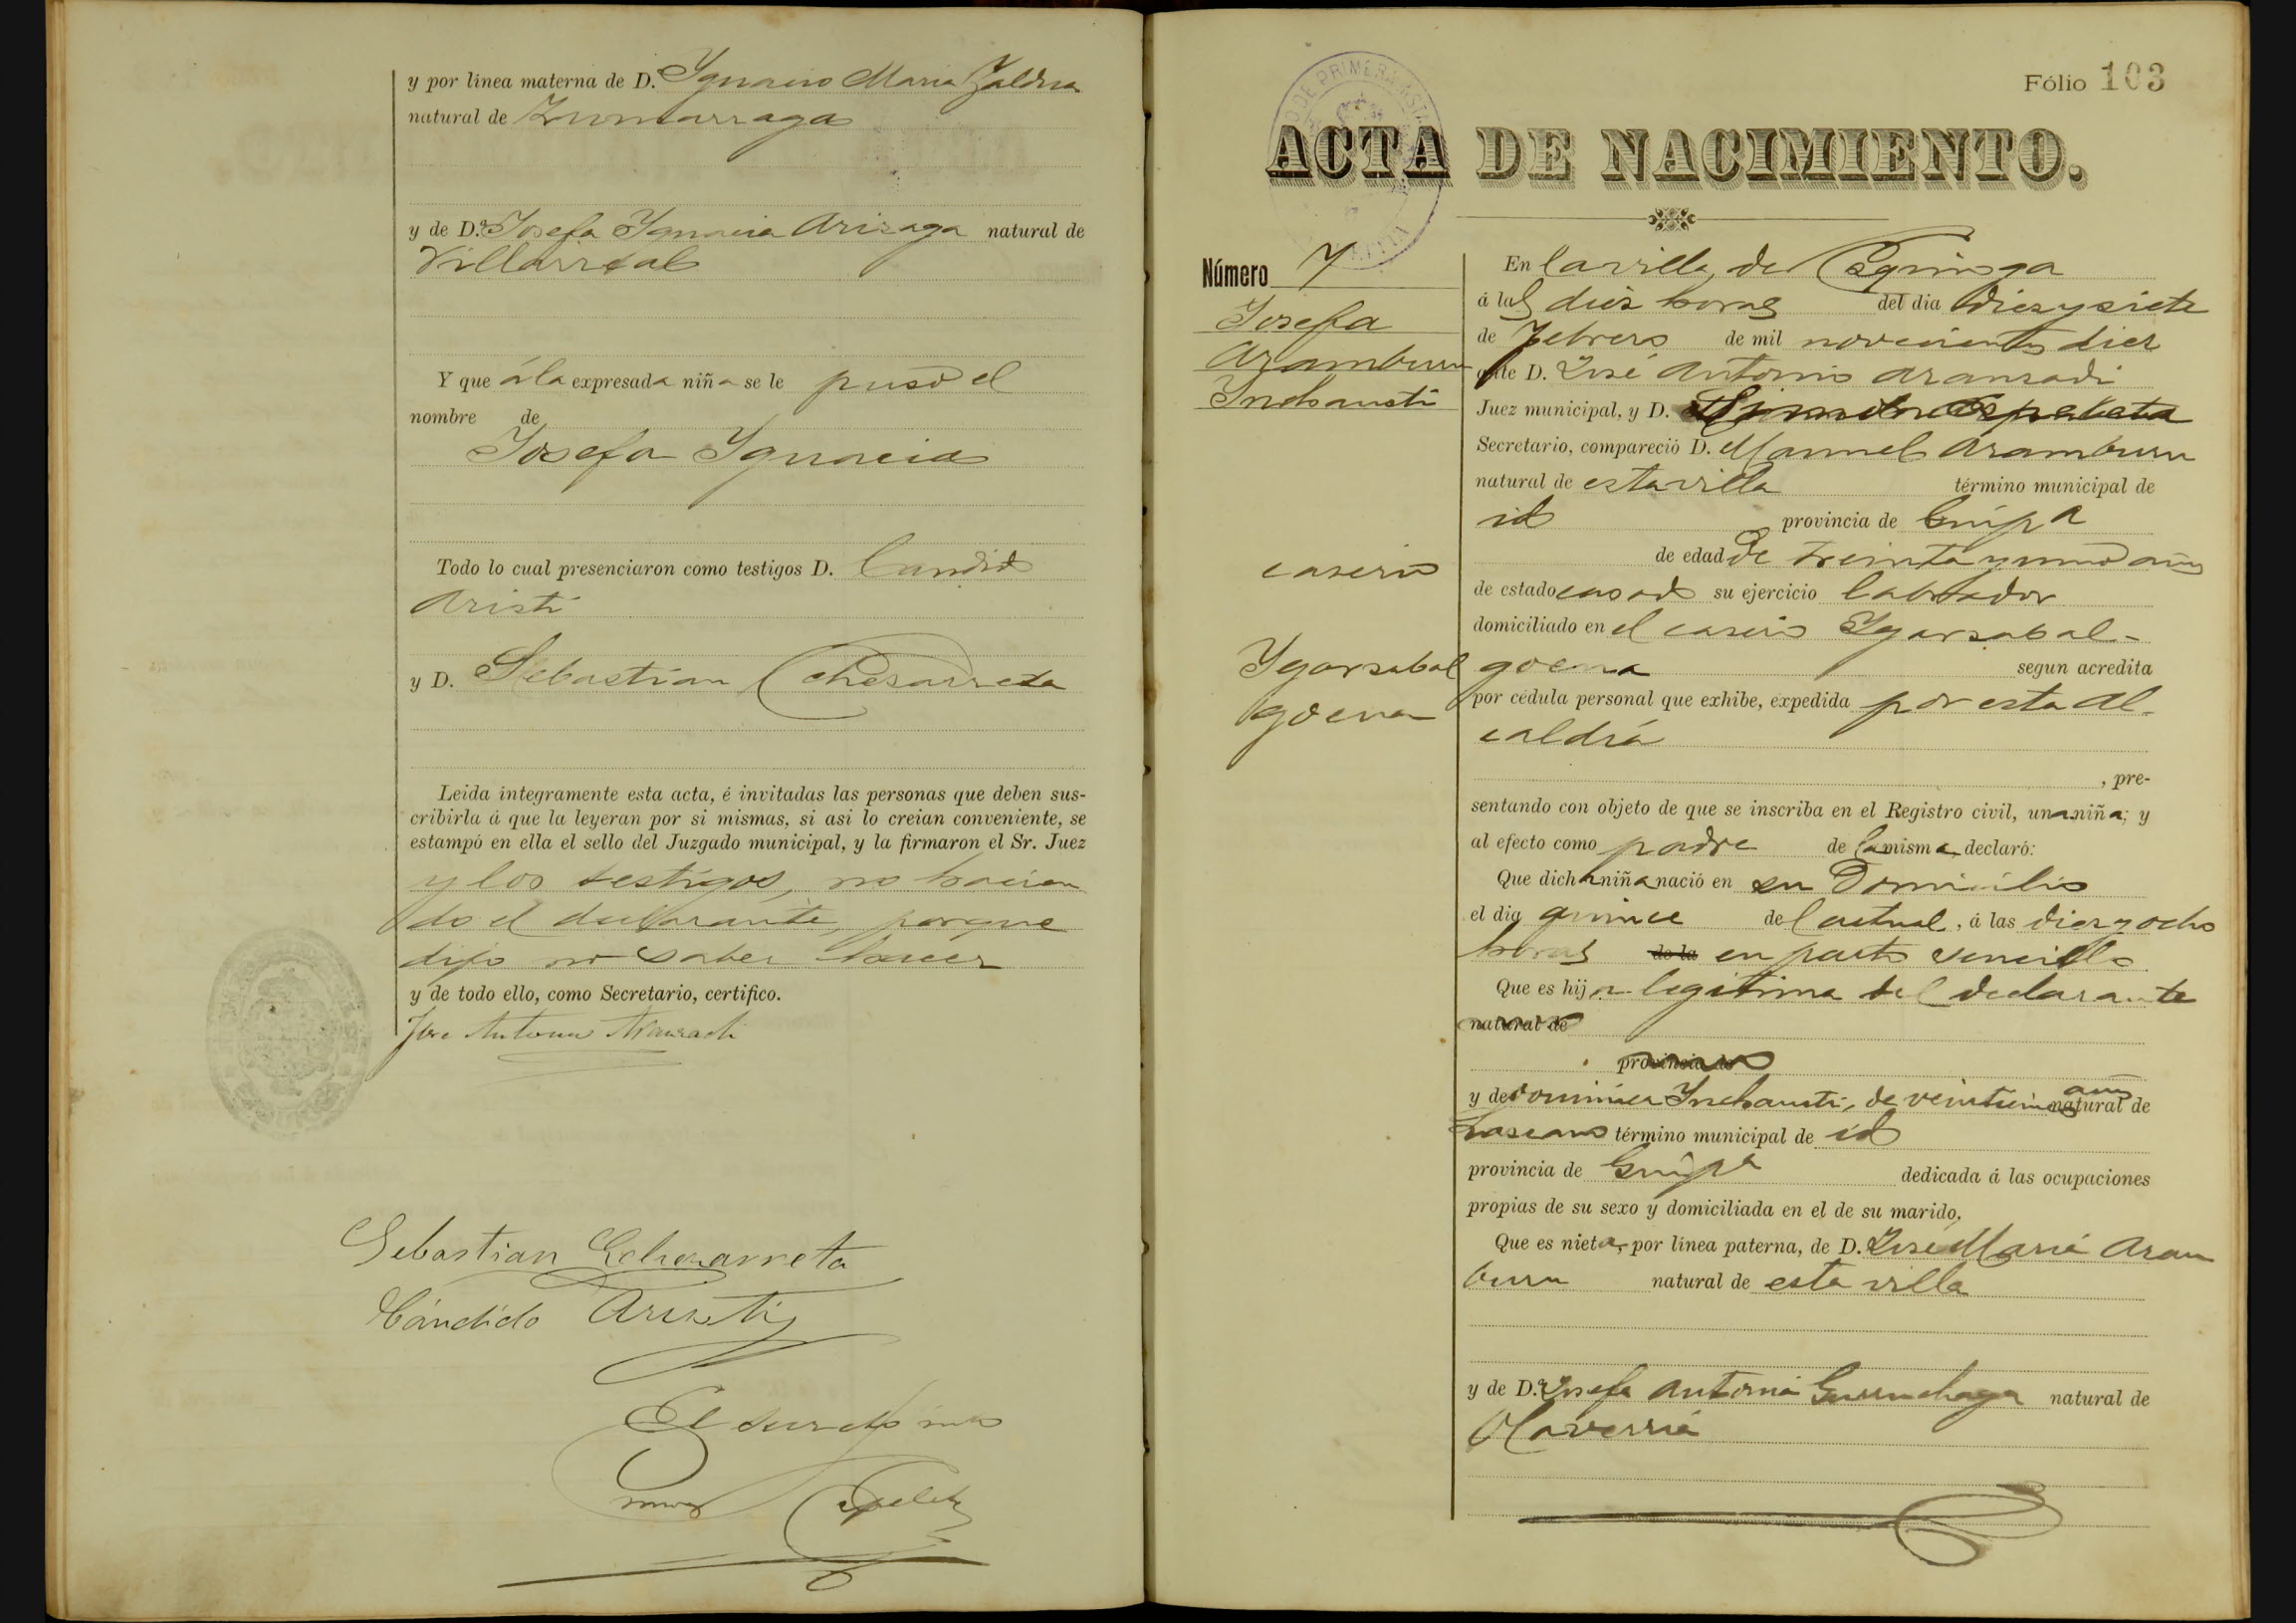 y por línea materna de D. Ygnacio Maria Zaldua
natural de Zumarraga
y de D.ª Josefa Ygnacia Arizaga natural de
Villarreal
Y que á la expresada niña se le puso el
nombre de
Josefa Ygnacia
Todo lo cual presenciaron como testigos D. Candido
Aristi
y D. Sebastian Echezarreta
Leida íntegramente esta acta, é invitadas las personas que deben sus-
cribirla á que la leyeran por si mismas, si asi lo creian conveniente, se
estampó en ella el sello del Juzgado municipal, y la firmaron el Sr. Juez
y los testigos, no hacien
do el declarante, porque
dijo no saber hacer
y de todo ello, como Secretario, certifico.
Jose Antonio Aranzadi
Sebastian Echezarreta
Cándido Aristi
El
Espeleta
Fólio 103
ACTA DE NACIMIENTO.
Número 7
Josefa
Aramburu
Inchausti
caserio
Ygarzabal
goena
En la villa de Ezquioga
á las diez horas del dia diez y siete
de Febrero de mil novecientos diez
ante D. José Antonio Aranzadi
Juez municipal, y D. Espeleta
Secretario, compareció D. Manuel Aramburu
natural de esta villa término municipal de
id provincia de Guipª
de edad de treinta y uno años
de estado casado su ejercicio labrador
domiciliado en el caserio Ygarzabal-
goena segun acredita
por cédula personal que exhibe, expedida por esta Al-
caldia
, pre-
sentando con objeto de que se inscriba en el Registro civil, una niña; y
al efecto como padre de la misma declaró:
Que dicha niña nació en su Domicilio
el dia quince del actual, á las diez y ocho
horas de la en parto sencillo
Que es hija legitima del declarante
natural de
provincia de
y de Dominica Inchausti, de veintiún años natural de
Lazcano término municipal de id
provincia de Guipª dedicada á las ocupaciones
propias de su sexo y domiciliada en el de su marido,
Que es nieta, por línea paterna, de D. José Maria Aram
buru natural de esta villa
y de D.ª Josefa Antonia Gurruchaga natural de
Olaverria